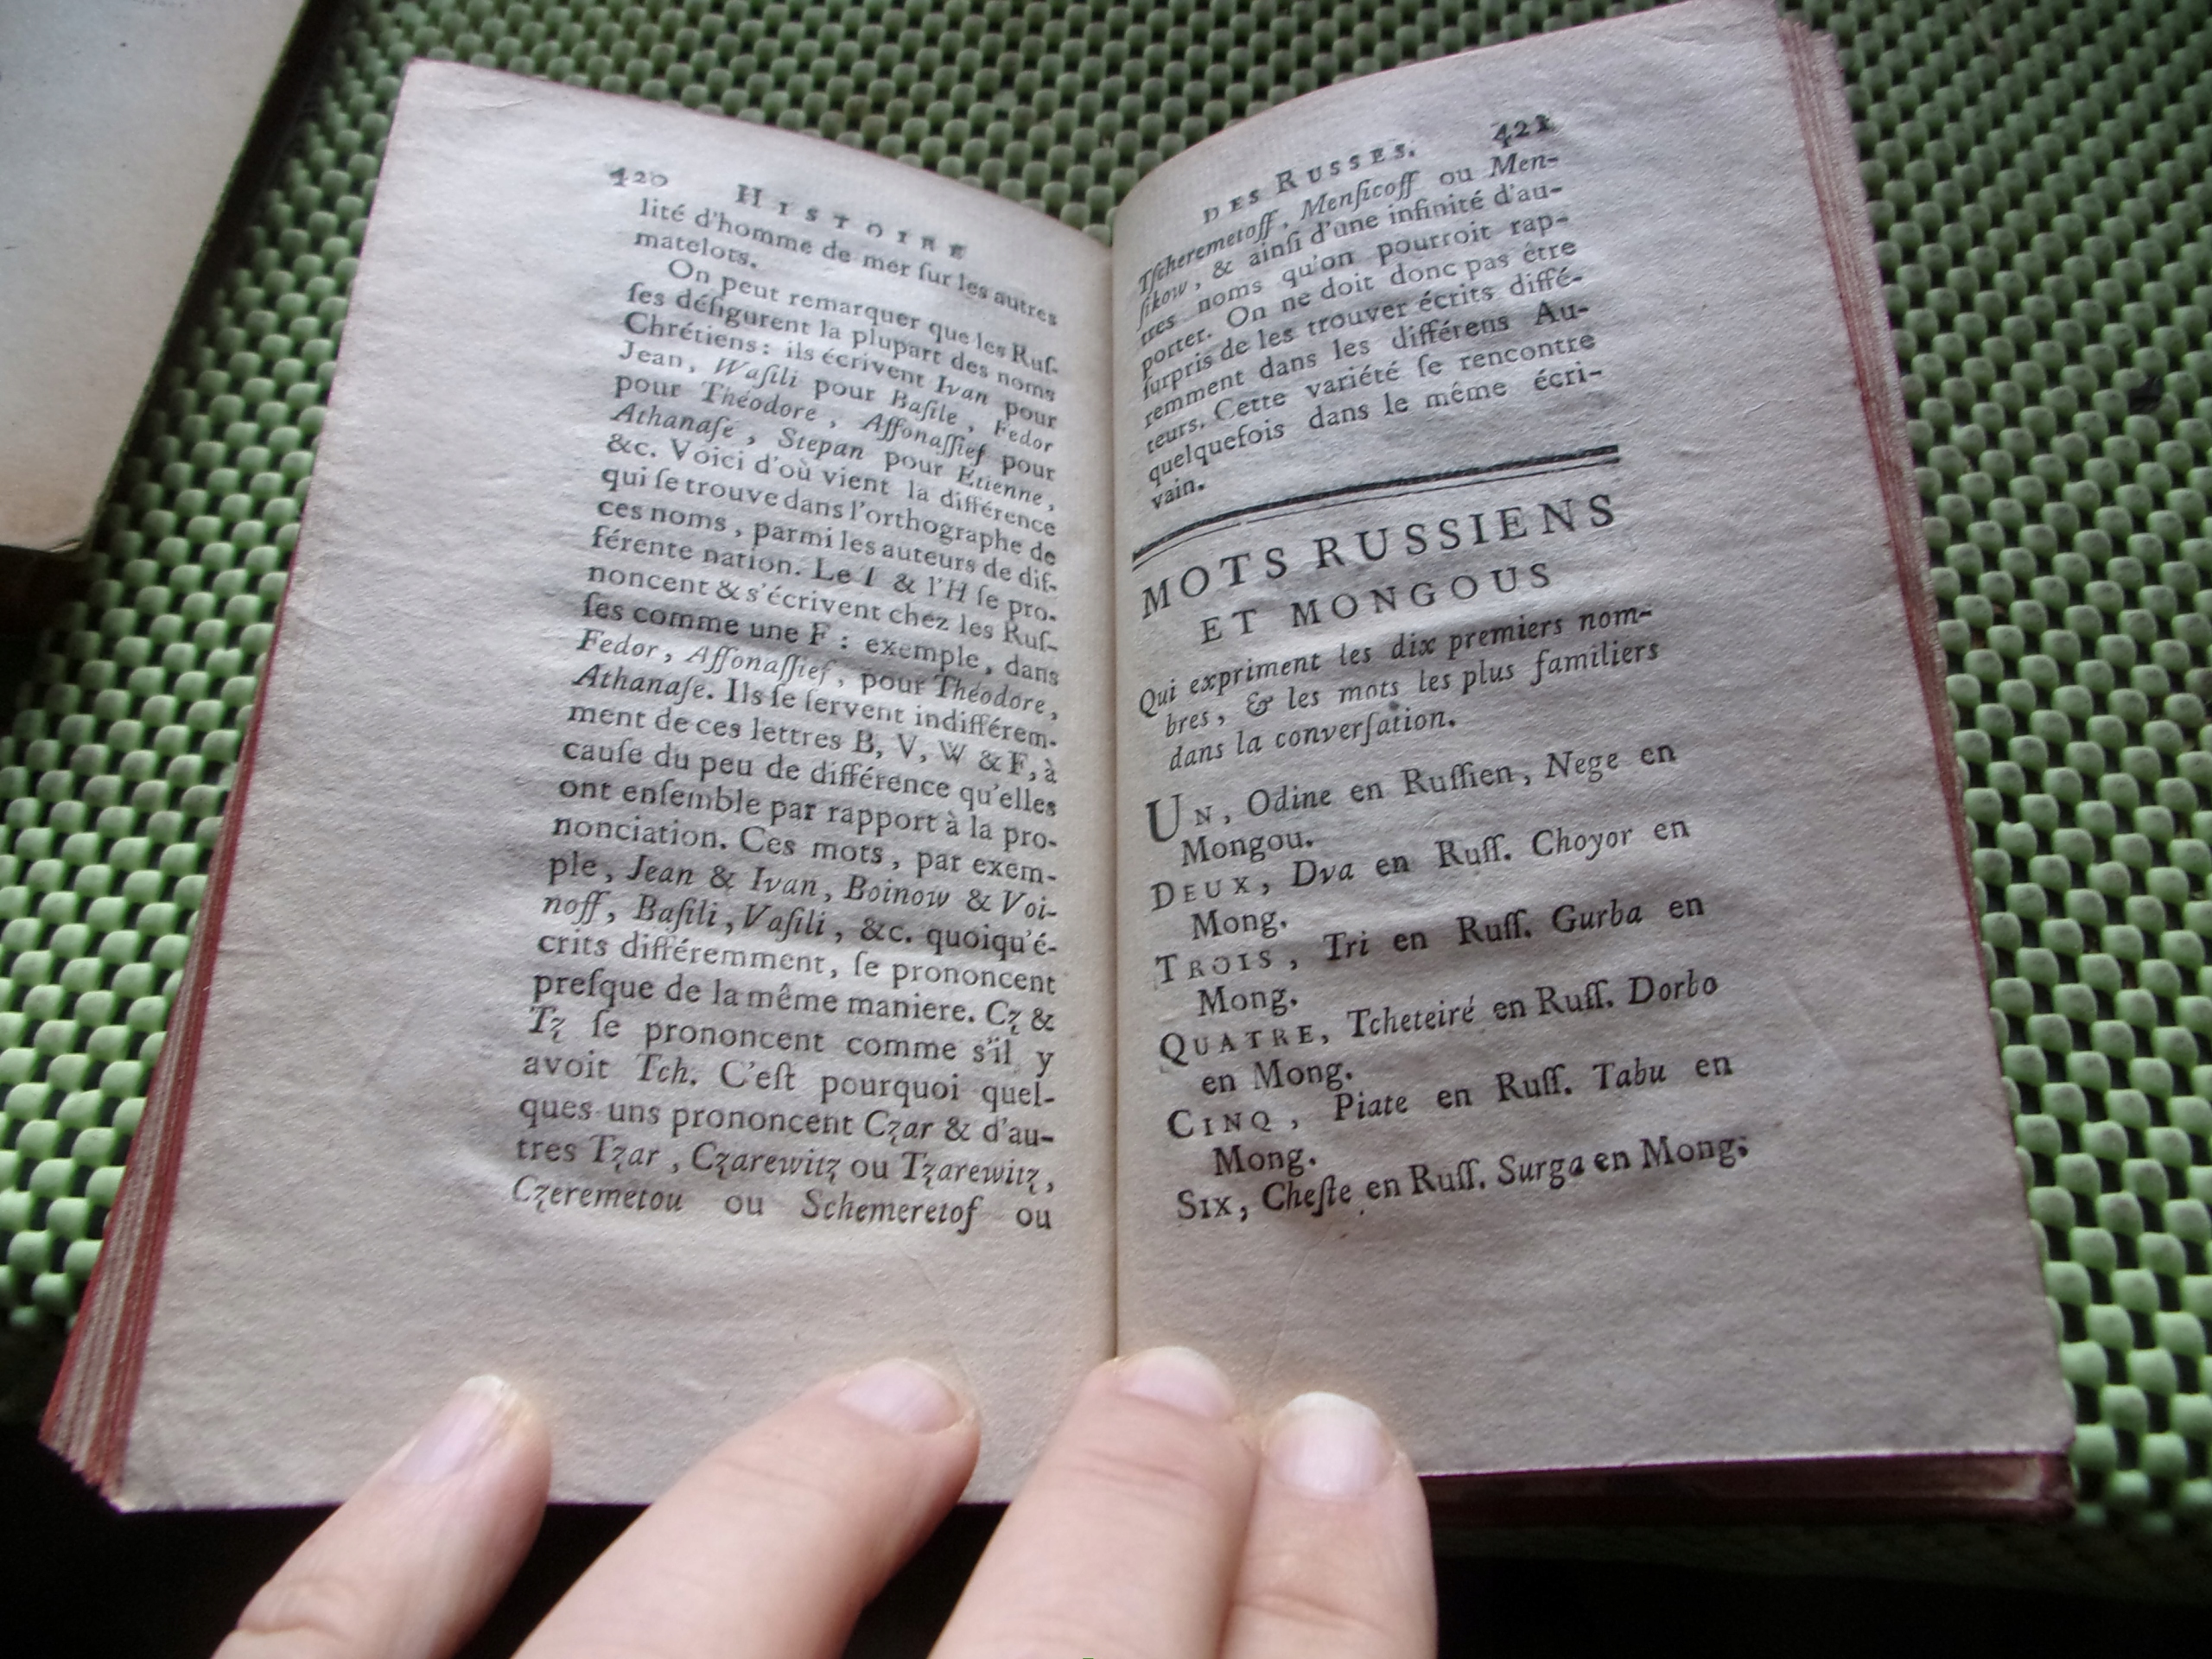 420 HISTOIRE
lité d'homme de mer ſur les autres
matelots.
On peut remarquer que les Ruſ-
ſes défigurent la plupart des noms
Chrétiens : ils écrivent Ivan pour
Jean, Waſili pour Baſile, Fedor
pour Théodore, Affonaſſief pour
Athanaſe, Stepan pour Etienne,
&c. Voici d'où vient la différence
qui ſe trouve dans l'orthographe de
ces noms, parmi les auteurs de dif-
férente nation. Le T & l'H ſe pro-
noncent & s'écrivent chez les Ruſ-
ſes comme une F : exemple, dans
Fedor, Affonaſſief, pour Théodore,
Athanaſe. Ils ſe ſervent indifférem-
ment de ces lettres B, V, W & F, à
cauſe du peu de différence qu'elles
ont enſemble par rapport à la pro-
nonciation. Ces mots, par exem-
ple, Jean & Ivan, Boinow & Voi-
noff, Baſili, Vaſili, &c. quoiqu'é-
crits différemment, ſe prononcent
preſque de la même maniere. Cz &
Tz ſe prononcent comme s'il y
avoit Tch. C'eſt pourquoi quel-
ques-uns prononcent Czar & d'au-
tres Tzar, Czarewitz ou Tzarewitz,
Czeremetou ou Schemeretof ou
DES RUSSES. 421
Tſcheremetoff, Menſicoff ou Men-
ſikow, & ainſi d'une infinité d'au-
tres noms qu'on pourroit rap-
porter. On ne doit donc pas être
ſurpris de les trouver écrits diffé-
remment dans les différens Au-
teurs. Cette variété ſe rencontre
quelquefois dans le même écri-
vain.
MOTS RUSSIENS
ET MONGOUS
Qui expriment les dix premiers nom-
bres, & les mots les plus familiers
dans la converſation.
UN, Odine en Ruſſien, Nege en
Mongou.
DEUX, Dva en Ruſſ. Choyor en
Mong.
TROIS, Tri en Ruſſ. Gurba en
Mong.
QUATRE, Tcheteiré en Ruſſ. Dorbo
en Mong.
CINQ, Piate en Ruſſ. Tabu en
Mong.
SIX, Cheſte en Ruſſ. Surga en Mong.